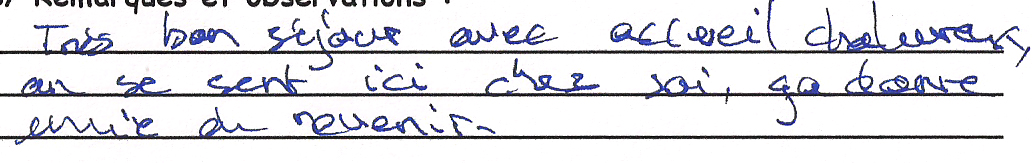 ) Remarques et observations :
Très bon séjour avec accueil chaleureux,
on se sent ici chez soi, ça donne
envie de revenir.